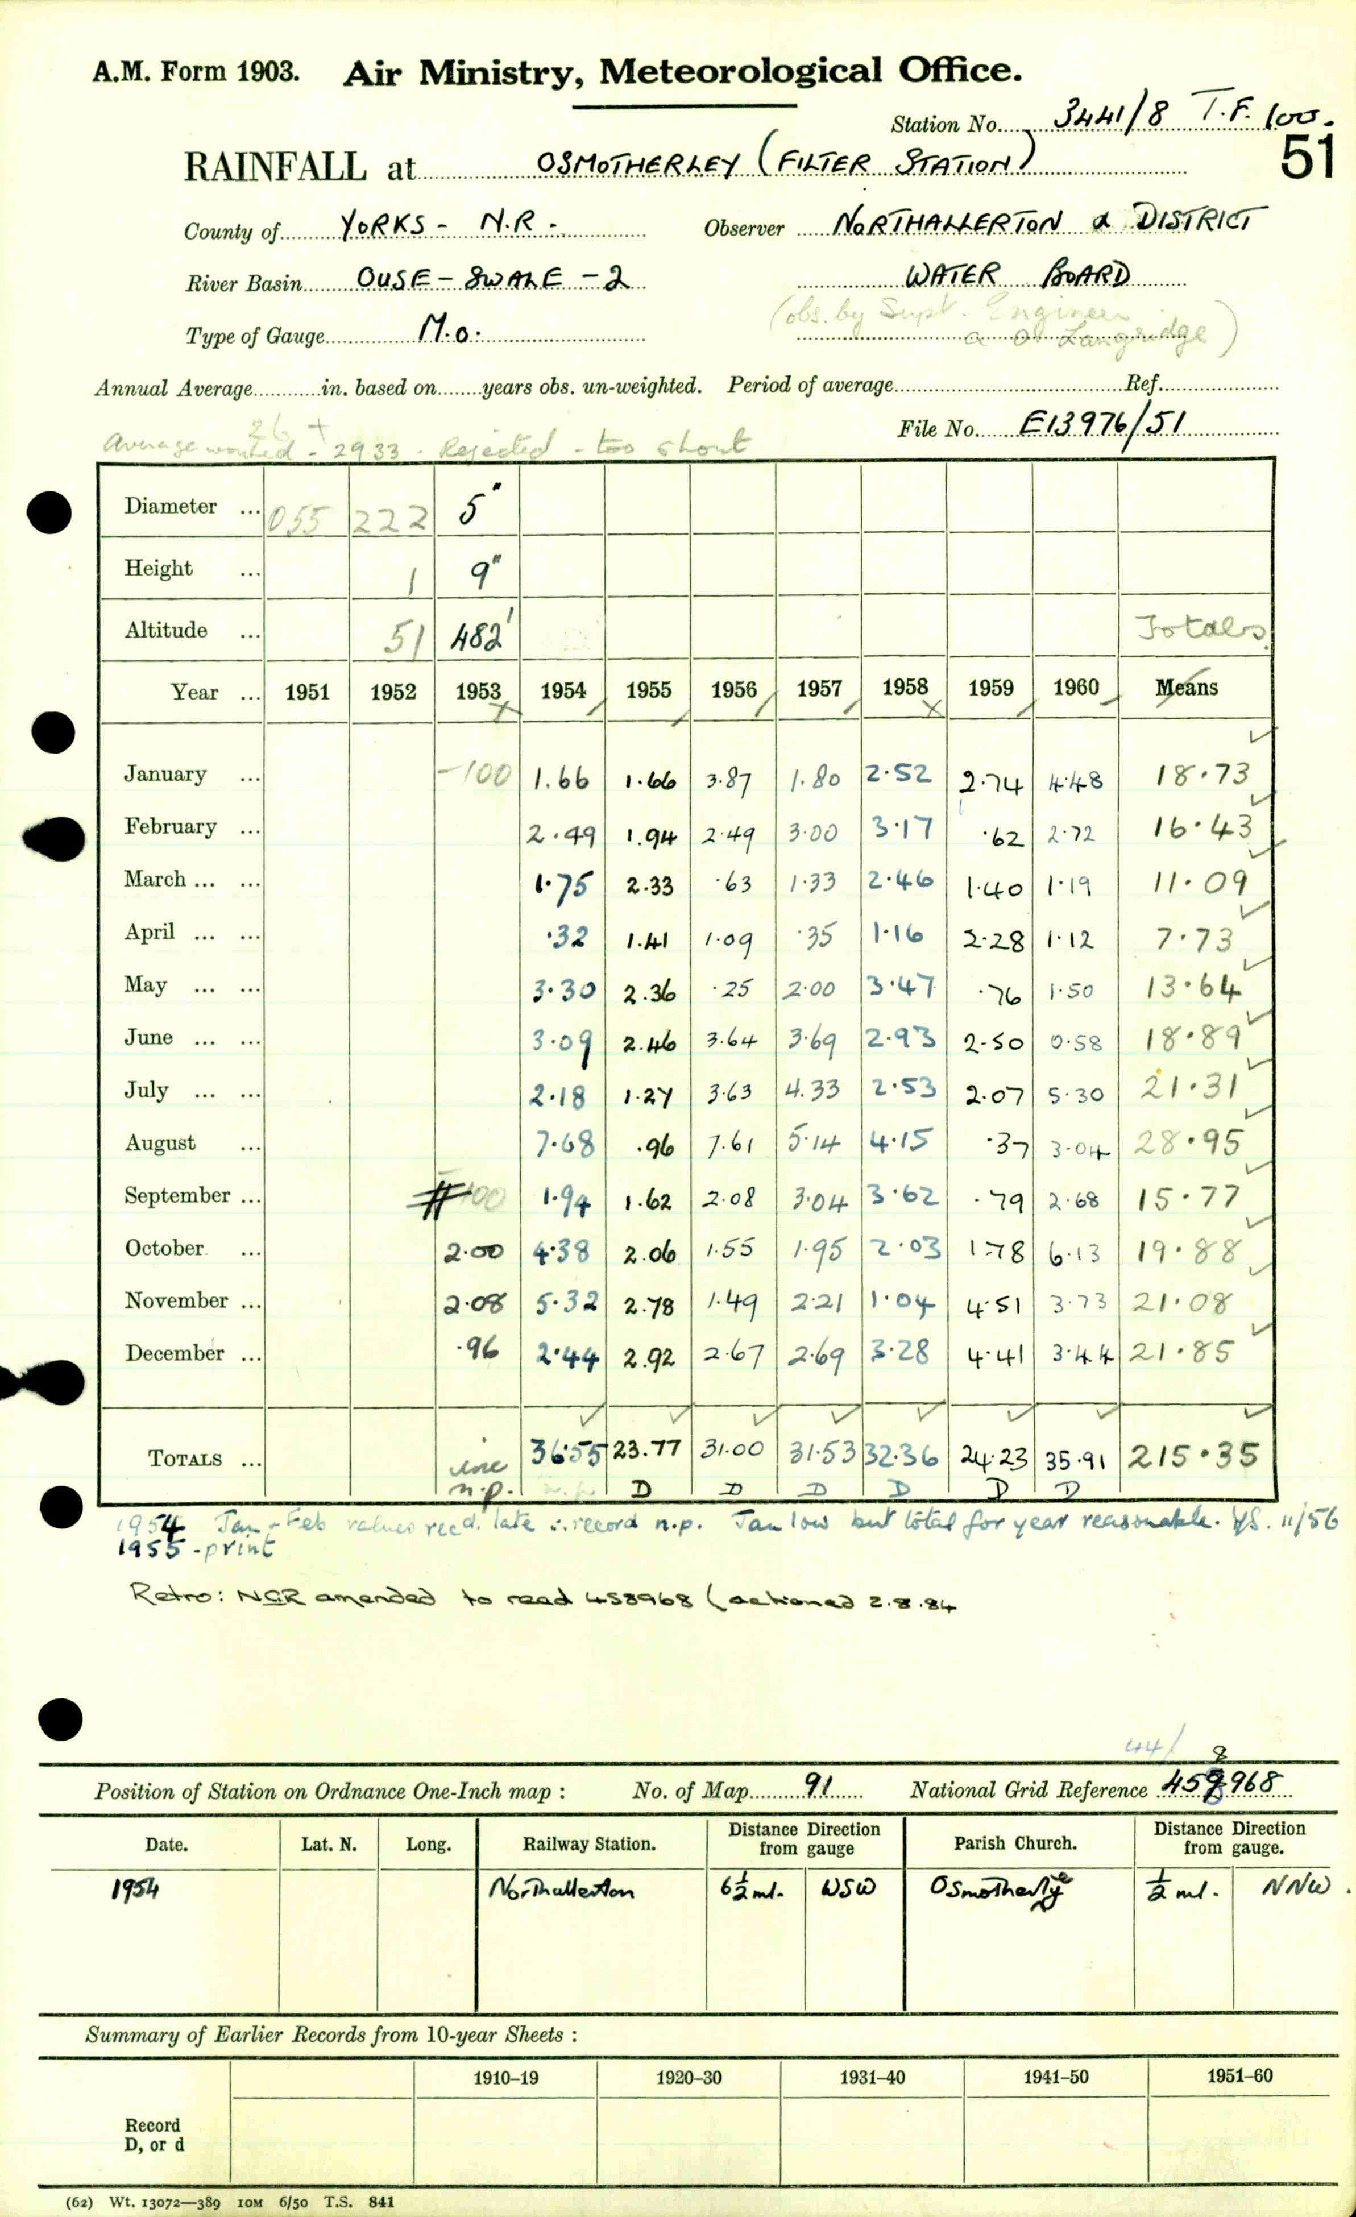 A.M. Form 1903. Air Ministry, Meteorological Office.
Station No. 3441/8 T.F. 100.
51
RAINFALL at OSMOTHERLEY (FILTER STATION)
County of YORKS - N.R. - Observer NORTHALLERTON & DISTRICT
River Basin OUSE - SWALE - 2 WATER BOARD
(obs. by Supt. Engineer
Type of Gauge M.O. Langridge)
Annual Average in. based on years obs. un-weighted. Period of average Ref.
26 +
File No. E13976/51
Average worked - 29.33 - Rejected - too short
Diameter ... 055 222 5"
Height ... 1 9"
Altitude ... 51 482' Totals
Year ... 1951 1952 1953 1954 1955 1956 1957 1958 1959 1960 Means
January ... -100 1.66 1.66 3.87 1.80 2.52 2.74 4.48 18.73
February ... 2.49 1.94 2.49 3.00 3.17 .62 2.72 16.43
March ... ... 1.75 2.33 .63 1.33 2.46 1.40 1.19 11.09
April ... ... .32 1.41 1.09 .35 1.16 2.28 1.12 7.73
May ... ... 3.30 2.36 .25 2.00 3.47 .76 1.50 13.64
June ... ... 3.09 2.46 3.64 3.69 2.93 2.50 0.58 18.89
July ... ... 2.18 1.27 3.63 4.33 2.53 2.07 5.30 21.31
August ... 7.68 .96 7.61 5.14 4.15 .37 3.04 28.95
September ... 100 1.94 1.62 2.08 3.04 3.62 .79 2.68 15.77
October ... 2.00 4.38 2.06 1.55 1.95 2.03 1.78 6.13 19.88
November ... 2.08 5.32 2.78 1.49 2.21 1.04 4.51 3.73 21.08
December ... .96 2.44 2.92 2.67 2.69 3.28 4.41 3.44 21.85
TOTALS ... inc 36.55 23.77 31.00 31.53 32.36 24.23 35.91 215.35
n.p. n.p. D D D D D D
1954 Jan + Feb values recd. late ∴ record n.p. Jan low but total for year reasonable. 11/56
1955 - print
Retro: NGR amended to read 458968 (actioned 2.8.84
44/ 8
Position of Station on Ordnance One-Inch map : No. of Map 91 National Grid Reference 459968
Date. Lat. N. Long. Railway Station. Distance Direction from gauge Parish Church. Distance Direction from gauge.
1954 Northallerton 6½ ml. WSW Osmotherley ½ ml. NNW.
Summary of Earlier Records from 10-year Sheets :
1910–19 1920–30 1931–40 1941–50 1951–60
Record
D, or d
(62) Wt. 13072—389 10M 6/50 T.S. 841